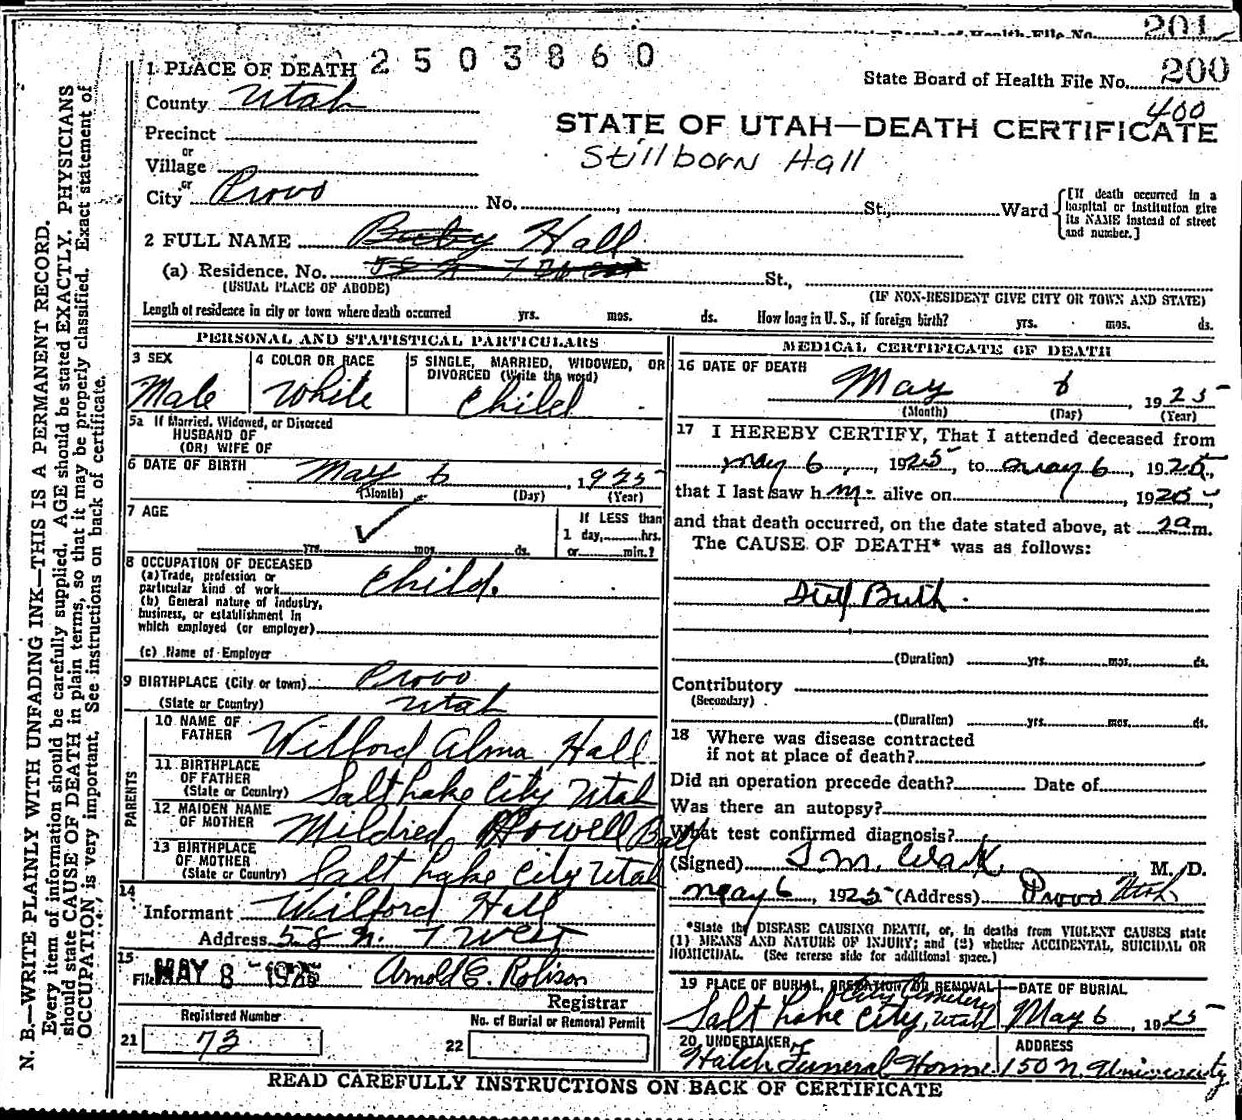 201
State Board of Health File No.
2503860
1 PLACE OF DEATH
State Board of Health File No. 200
400
County Utah
STATE OF UTAH—DEATH CERTIFICATE
Stillborn Hall
Precinct
or
Village
or
City Provo No. , St., Ward
[If death occurred in a hospital or institution give its NAME instead of street and number.]
2 FULL NAME Baby Hall
(a) Residence. No. St.,
(USUAL PLACE OF ABODE) (IF NON-RESIDENT GIVE CITY OR TOWN AND STATE)
Length of residence in city or town where death occurred yrs. mos. ds. How long in U. S., if foreign birth? yrs. mos. ds.
PERSONAL AND STATISTICAL PARTICULARS
3 SEX
Male
4 COLOR OR RACE
White
5 SINGLE, MARRIED, WIDOWED, OR
DIVORCED (Write the word)
Child
5a If Married, Widowed, or Divorced
HUSBAND OF
(OR) WIFE OF
6 DATE OF BIRTH May 6, 1925
(Month) (Day) (Year)
7 AGE
yrs. mos. ds.
If LESS than
1 day, hrs.
or min.?
8 OCCUPATION OF DECEASED
(a) Trade, profession or
particular kind of work Child.
(b) General nature of industry,
business, or establishment in
which employed (or employer)
(c) Name of Employer
9 BIRTHPLACE (City or town) Provo
(State or Country) Utah
PARENTS
10 NAME OF
FATHER Wilford Alma Hall
11 BIRTHPLACE
OF FATHER
(State or Country) Salt Lake City Utah
12 MAIDEN NAME
OF MOTHER Mildred Howell Ball
13 BIRTHPLACE
OF MOTHER
(State or Country) Salt Lake City Utah
14
Informant Wilford Hall
Address 58 N. 7 West
15
Filed MAY 8 - 1925 Arnold E. Robison
Registrar
Registered Number
21 73
No. of Burial or Removal Permit
22
MEDICAL CERTIFICATE OF DEATH
16 DATE OF DEATH
May 6, 1925
(Month) (Day) (Year)
17 I HEREBY CERTIFY, That I attended deceased from
May 6, 1925, to May 6, 1925,
that I last saw h m. alive on 1925,
and that death occurred, on the date stated above, at 2 a m.
The CAUSE OF DEATH* was as follows:
Still Birth.
(Duration) yrs. mos. ds.
Contributory
(Secondary)
(Duration) yrs. mos. ds.
18 Where was disease contracted
if not at place of death?
Did an operation precede death? Date of
Was there an autopsy?
What test confirmed diagnosis?
(Signed) M. D.
May 6, 1925 (Address) Provo Utah
*State the DISEASE CAUSING DEATH, or, in deaths from VIOLENT CAUSES state
(1) MEANS AND NATURE OF INJURY; and (2) whether ACCIDENTAL, SUICIDAL OR
HOMICIDAL. (See reverse side for additional space.)
19 PLACE OF BURIAL, CREMATION OR REMOVAL
City Cemetery
Salt Lake City, Utah
DATE OF BURIAL
May 6, 1925
20 UNDERTAKER
Hatch Funeral Home
ADDRESS
150 N. University
READ CAREFULLY INSTRUCTIONS ON BACK OF CERTIFICATE
N. B.—WRITE PLAINLY WITH UNFADING INK—THIS IS A PERMANENT RECORD.
Every item of information should be carefully supplied. AGE should be stated EXACTLY. PHYSICIANS
should state CAUSE OF DEATH in plain terms, so that it may be properly classified. Exact statement of
OCCUPATION is very important. See instructions on back of certificate.